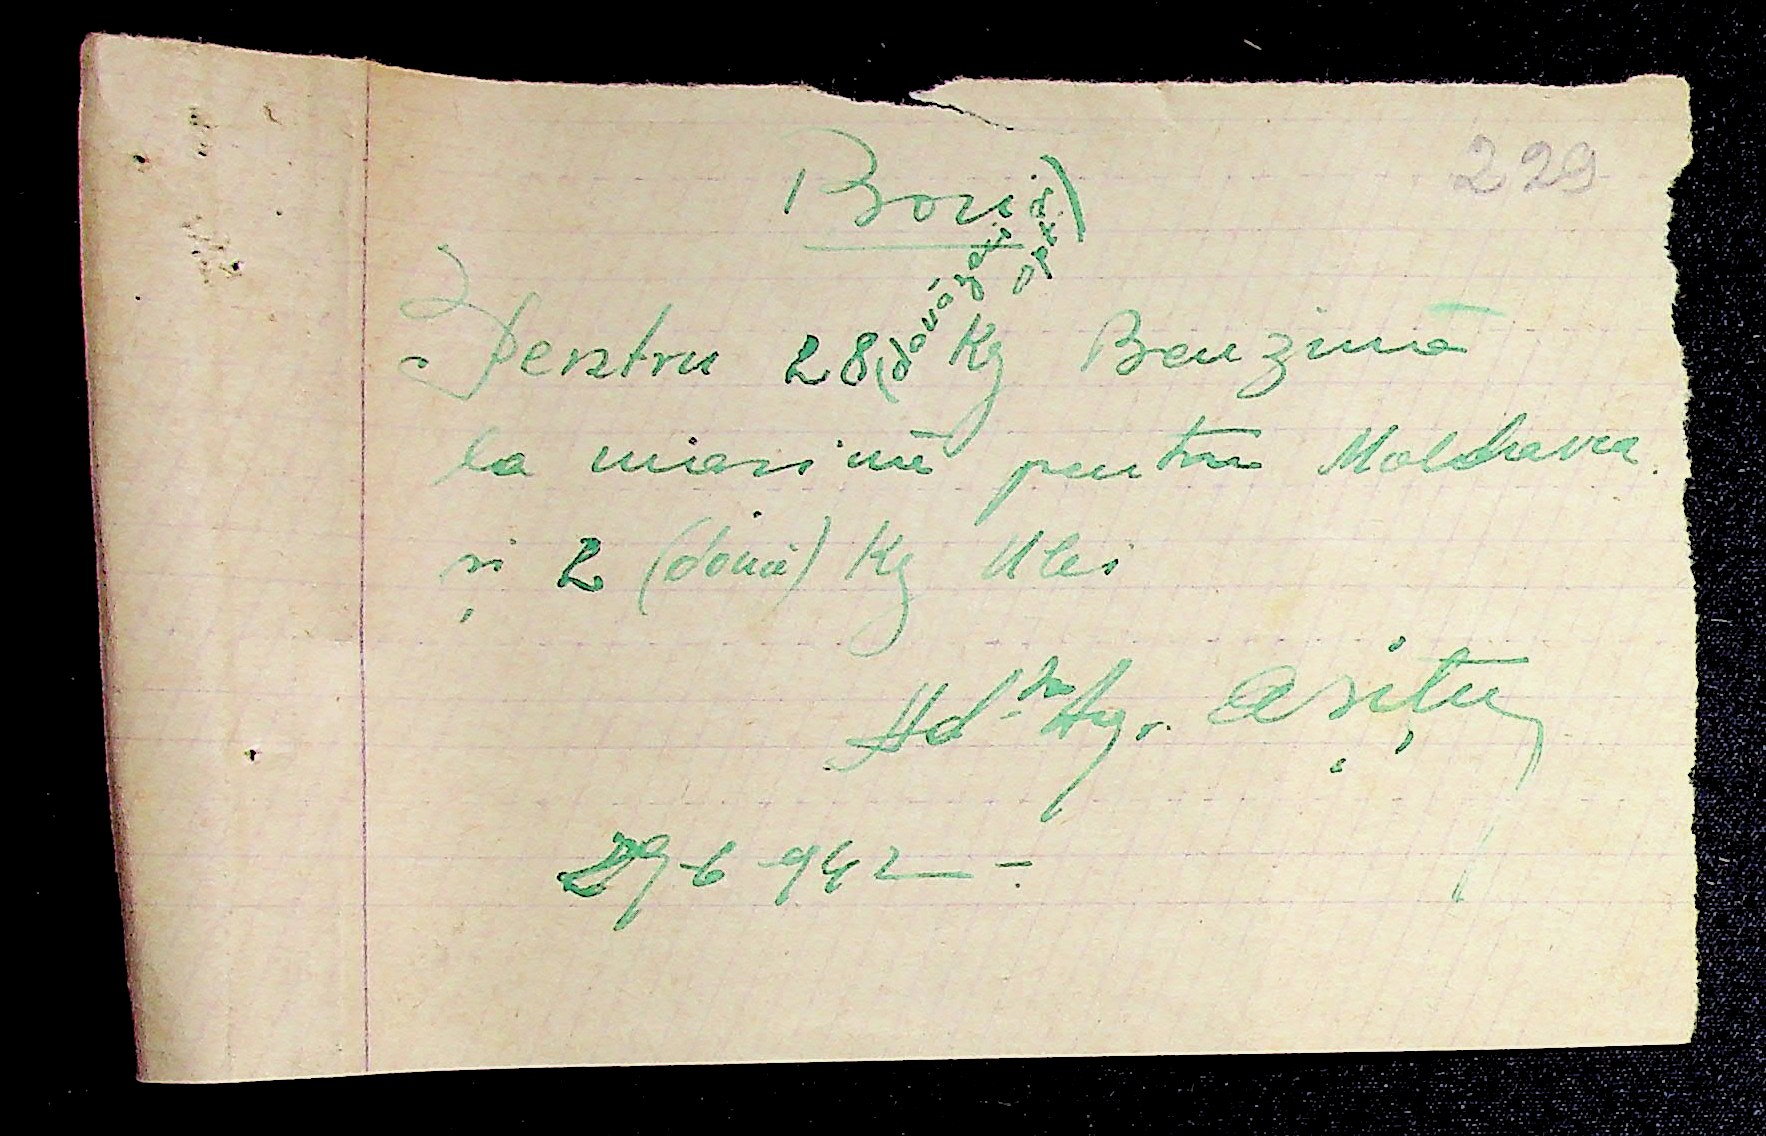 229
Bon
Pentru 28 (douăzeci și opt) Kg Benzină
la mașină pentru Moldova
și 2 (două) Kg Ulei
Agr.
29-6-942-